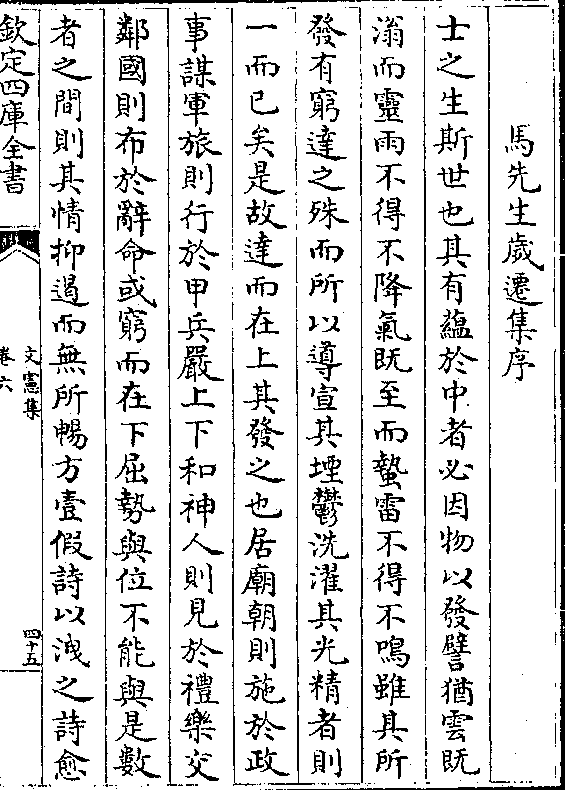 馬先生歲遷集序
士之生斯世也其有蘊於中者必因物以發譬猶雲既
滃而靈雨不得不降氣既至而蟄雷不得不鳴雖其所
發有窮達之殊而所以導宣其堙鬱洗濯其光精者則
一而已矣是故達而在上其發之也居廟朝則施於政
事謀軍旅則行於甲兵嚴上下和神人則見於禮樂交
鄰國則布於辭命或窮而在下屈勢與位不能與是數
者之間則其情抑遏而無所暢方壹假詩以洩之詩愈
欽定四庫全書
文憲集
卷六
四十五